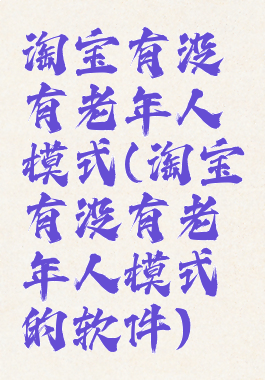 淘宝有没
有老年人
模式(淘宝
有没有老
年人模式
的软件)